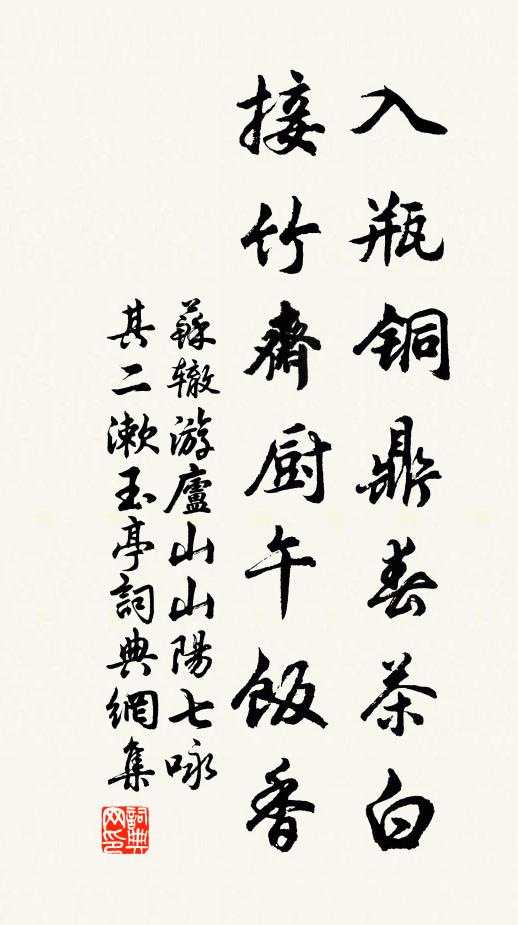 入瓶铜鼎春茶白
接竹齋厨午飯香
蘇辙游廬山山陽七咏
其二漱玉亭詞典網集
詞典網印